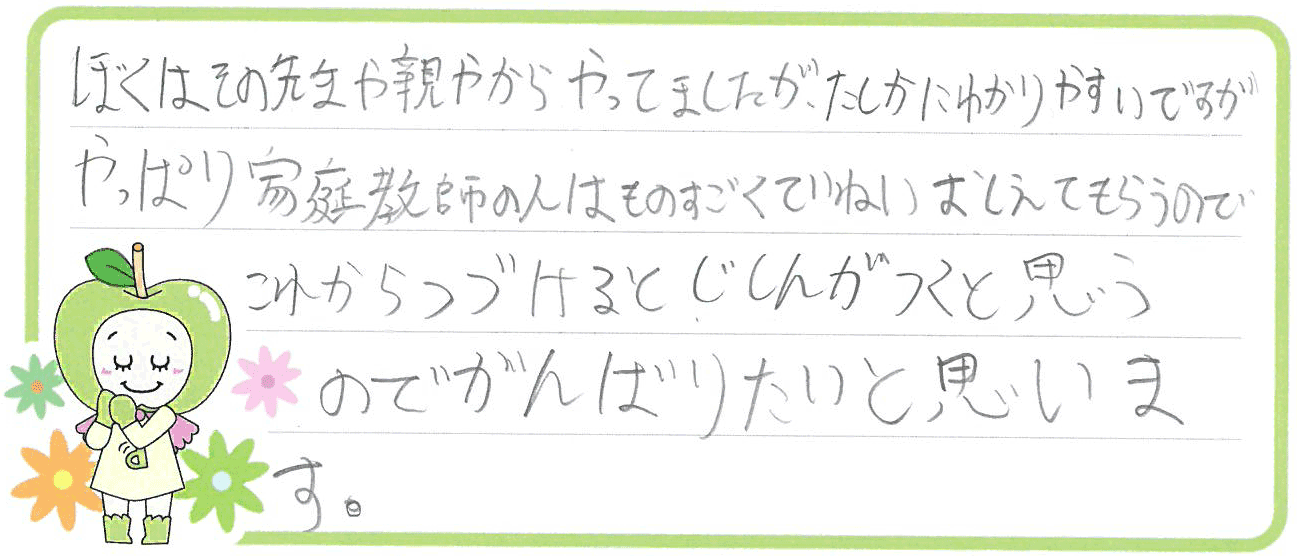 ぼくはその先生や親やからやってましたが、たしかにわかりやすいですが
やっぱり家庭教師の人はものすごくていねいおしえてもらうので
これからつづけるとじしんがつくと思う
のでがんばりたいと思いま
す。